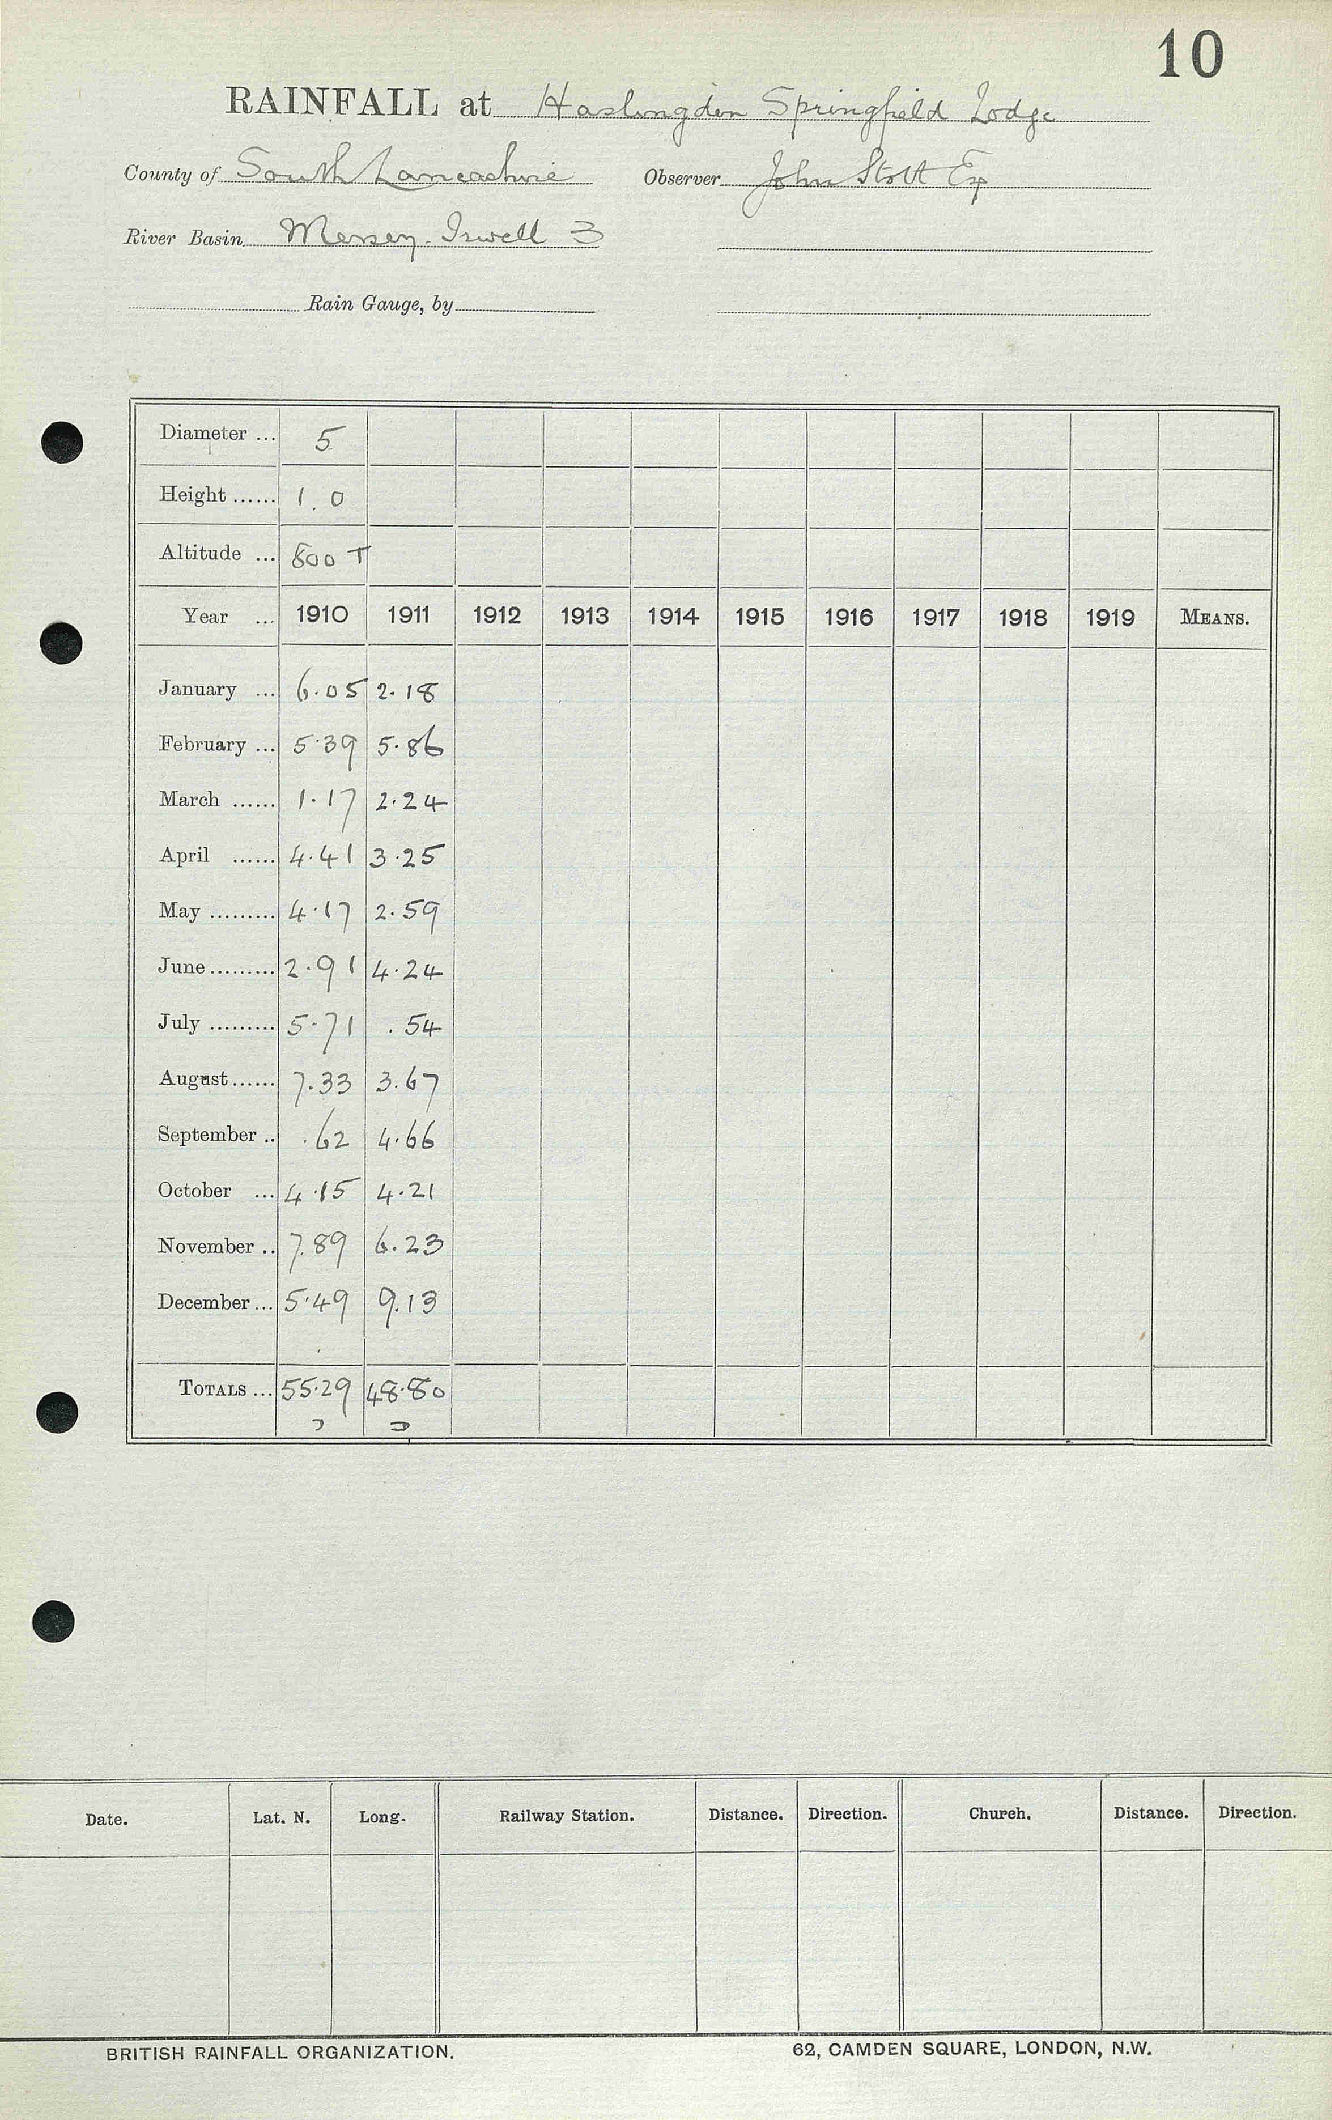 10
RAINFALL at Haslingden Springfield Lodge
County of South Lancashire Observer John Stott Esq
River Basin Mersey. Irwell 3
Rain Gauge, by
Diameter ... 5
Height ...... 1.0
Altitude ... 800 T
Year ... 1910 1911 1912 1913 1914 1915 1916 1917 1918 1919 MEANS.
January ... 6.05 2.18
February ... 5.39 5.86
March ...... 1.17 2.24
April ...... 4.41 3.25
May ......... 4.17 2.59
June ......... 2.91 4.24
July ......... 5.71 .54
August ...... 7.33 3.67
September .. .62 4.66
October ... 4.15 4.21
November .. 7.89 6.23
December ... 5.49 9.13
TOTALS ... 55.29 48.80
Date. Lat. N. Long. Railway Station. Distance. Direction. Church. Distance. Direction.
BRITISH RAINFALL ORGANIZATION. 62, CAMDEN SQUARE, LONDON, N.W.